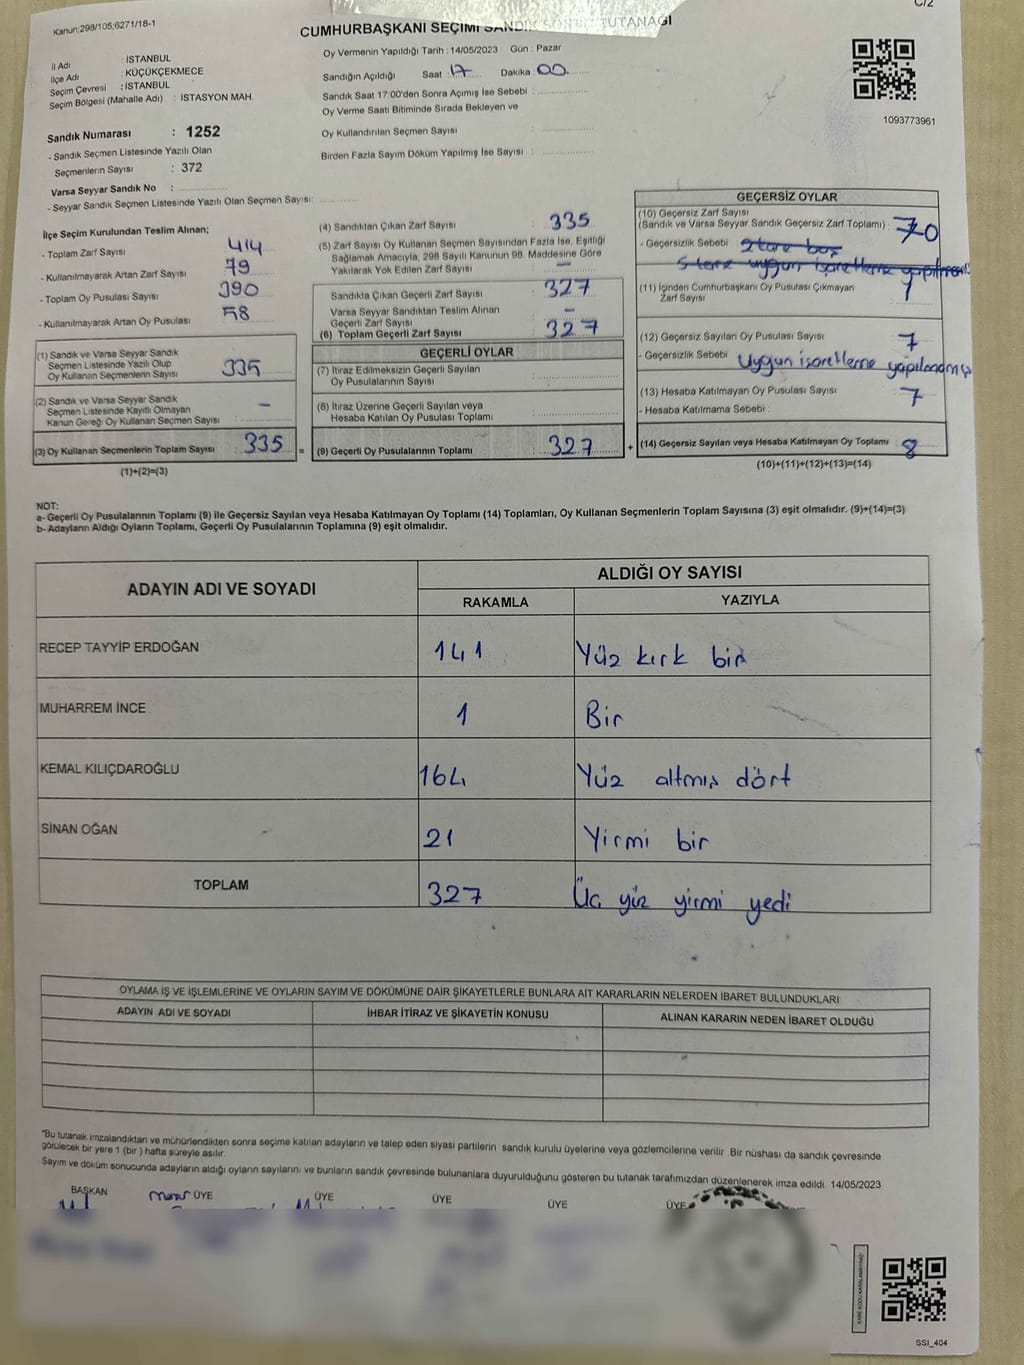 Kanun;298/105;6271/18-1
C/2
CUMHURBAŞKANI SEÇİMİ SANDIK SONUÇ TUTANAĞI
İl Adı : İSTANBUL
İlçe Adı : KÜÇÜKÇEKMECE
Seçim Çevresi : İSTANBUL
Seçim Bölgesi (Mahalle Adı) : İSTASYON MAH.
Sandık Numarası : 1252
- Sandık Seçmen Listesinde Yazılı Olan
Seçmenlerin Sayısı : 372
Varsa Seyyar Sandık No :
- Seyyar Sandık Seçmen Listesinde Yazılı Olan Seçmen Sayısı:
Oy Vermenin Yapıldığı Tarih : 14/05/2023 Gün : Pazar
Sandığın Açıldığı Saat : 17 Dakika : 00
Sandık Saat 17:00'den Sonra Açımış İse Sebebi :
Oy Verme Saati Bitiminde Sırada Bekleyen ve
Oy Kullandırılan Seçmen Sayısı :
Birden Fazla Sayım Döküm Yapılmış İse Sayısı :
1093773961
İlçe Seçim Kurulundan Teslim Alınan;
- Toplam Zarf Sayısı : 414
- Kullanılmayarak Artan Zarf Sayısı : 79
- Toplam Oy Pusulası Sayısı : 390
- Kullanılmayarak Artan Oy Pusulası : 58
(1) Sandık ve Varsa Seyyar Sandık
Seçmen Listesinde Yazılı Olup
Oy Kullanan Seçmenlerin Sayısı : 335
(2) Sandık ve Varsa Seyyar Sandık
Seçmen Listesinde Kayıtlı Olmayan
Kanun Gereği Oy Kullanan Seçmen Sayısı : -
(3) Oy Kullanan Seçmenlerin Toplam Sayısı : 335 =
(1)+(2)=(3)
(4) Sandıktan Çıkan Zarf Sayısı : 335
(5) Zarf Sayısı Oy Kullanan Seçmen Sayısından Fazla İse, Eşitliği
Sağlamak Amacıyla, 298 Sayılı Kanunun 98. Maddesine Göre
Yakılarak Yok Edilen Zarf Sayısı : -
Sandıkta Çıkan Geçerli Zarf Sayısı : 327
Varsa Seyyar Sandıktan Teslim Alınan
Geçerli Zarf Sayısı : -
(6) Toplam Geçerli Zarf Sayısı : 327
GEÇERLİ OYLAR
(7) İtiraz Edilmeksizin Geçerli Sayılan
Oy Pusulalarının Sayısı :
(8) İtiraz Üzerine Geçerli Sayılan veya
Hesaba Katılan Oy Pusulası Toplamı :
(9) Geçerli Oy Pusulalarının Toplamı : 327 +
GEÇERSİZ OYLAR
(10) Geçersiz Zarf Sayısı
(Sandık ve Varsa Seyyar Sandık Geçersiz Zarf Toplamı) : 0
- Geçersizlik Sebebi :
(11) İçinden Cumhurbaşkanı Oy Pusulası Çıkmayan
Zarf Sayısı : 1
(12) Geçersiz Sayılan Oy Pusulası Sayısı : 7
- Geçersizlik Sebebi : Uygun işaretleme yapılmamış
(13) Hesaba Katılmayan Oy Pusulası Sayısı : 7
- Hesaba Katılmama Sebebi :
(14) Geçersiz Sayılan veya Hesaba Katılmayan Oy Toplamı : 8
(10)+(11)+(12)+(13)=(14)
NOT:
a- Geçerli Oy Pusulalarının Toplamı (9) ile Geçersiz Sayılan veya Hesaba Katılmayan Oy Toplamı (14) Toplamları, Oy Kullanan Seçmenlerin Toplam Sayısına (3) eşit olmalıdır. (9)+(14)=(3)
b- Adayların Aldığı Oyların Toplamı, Geçerli Oy Pusulalarının Toplamına (9) eşit olmalıdır.
ADAYIN ADI VE SOYADI ALDIĞI OY SAYISI
RAKAMLA YAZIYLA
RECEP TAYYİP ERDOĞAN 141 Yüz kırk bir
MUHARREM İNCE 1 Bir
KEMAL KILIÇDAROĞLU 164 Yüz altmış dört
SİNAN OĞAN 21 Yirmi bir
TOPLAM 327 Üç yüz yirmi yedi
OYLAMA İŞ VE İŞLEMLERİNE VE OYLARIN SAYIM VE DÖKÜMÜNE DAİR ŞİKAYETLERLE BUNLARA AİT KARARLARIN NELERDEN İBARET BULUNDUKLARI
ADAYIN ADI VE SOYADI İHBAR İTİRAZ VE ŞİKAYETİN KONUSU ALINAN KARARIN NEDEN İBARET OLDUĞU
"Bu tutanak imzalandıktan ve mühürlendikten sonra seçime katılan adayların ve talep eden siyasi partilerin sandık kurulu üyelerine veya gözlemcilerine verilir. Bir nüshası da sandık çevresinde
görülecek bir yere 1 (bir ) hafta süreyle asılır.
Sayım ve döküm sonucunda adayların aldığı oyların sayılarını ve bunların sandık çevresinde bulunanlara duyurulduğunu gösteren bu tutanak tarafımızdan düzenlenerek imza edildi. 14/05/2023
BAŞKAN ÜYE ÜYE ÜYE ÜYE ÜYE
SSI_404